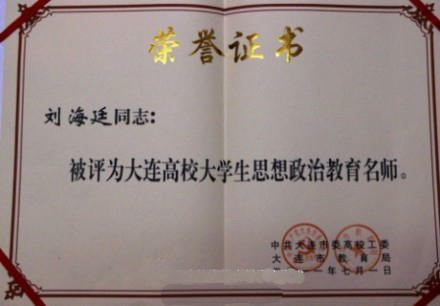 荣誉证书
刘海廷同志:
被评为大连高校大学生思想政治教育名师。
中共大连市委高校工委
大连市教育局
一年七月一日